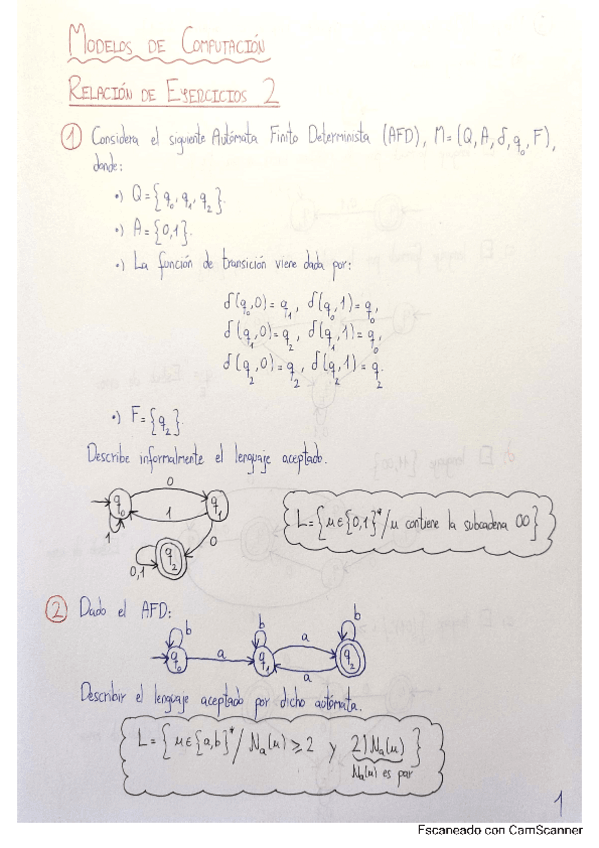 MODELOS DE COMPUTACIÓN
RELACIÓN DE EJERCICIOS 2
1 Considera el siguiente Autómata Finito Determinista (AFD), M=(Q,A,δ,q₀,F),
donde:
•) Q={q₀,q₁,q₂}.
•) A={0,1}.
•) La función de transición viene dada por:
δ(q₀,0)=q₁, δ(q₀,1)=q₀,
δ(q₁,0)=q₂, δ(q₁,1)=q₀,
δ(q₂,0)=q₂, δ(q₂,1)=q₂.
•) F={q₂}.
Describe informalmente el lenguaje aceptado.
0
q₀ 1 q₁
1
0
q₂
0,1
L={u∈{0,1}*/u contiene la subcadena 00}
2 Dado el AFD:
b b b
q₀ a q₁ a q₂
a
Describir el lenguaje aceptado por dicho autómata.
L={u∈{a,b}*/Nₐ(u)≥2 y 2|Nₐ(u)}
Nₐ(u) es par
1
Escaneado con CamScanner